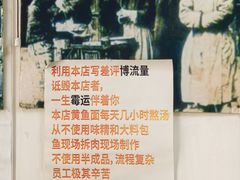 利用本店写差评博流量
诋毁本店者，
一生霉运伴着你
本店黄鱼面每天几小时熬汤
从不使用味精和大料包
鱼现场拆肉现场制作
不使用半成品，流程复杂
员工极其辛苦